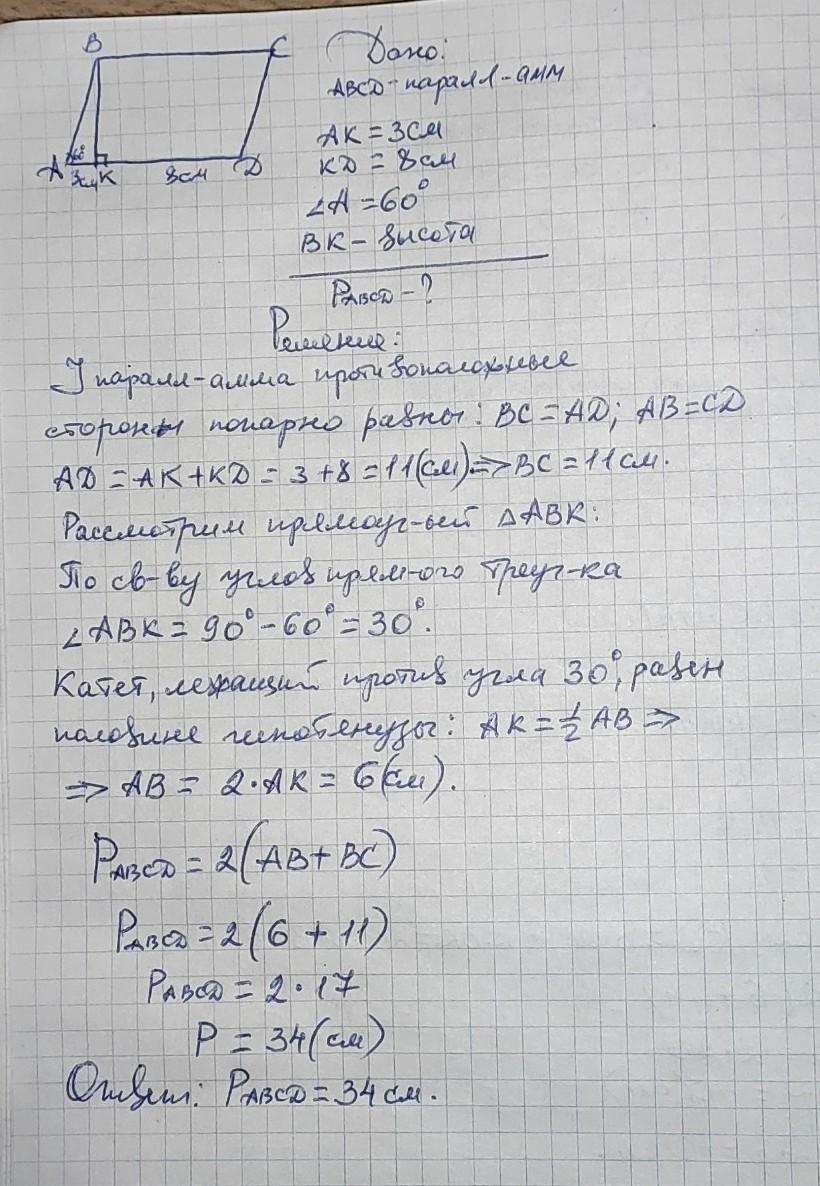 B C
A 60° 3см K 8см D
Дано:
ABCD - паралл-амм
AK = 3см
KD = 8см
∠A = 60°
BK - высота
PABCD - ?
Решение:
У паралл-амма противоположные
стороны попарно равны: BC = AD; AB = CD
AD = AK + KD = 3 + 8 = 11(см) => BC = 11см.
Рассмотрим прямоуг-ый △ABK:
По св-ву углов прям-ого треуг-ка
∠ABK = 90° - 60° = 30°.
Катет, лежащий против угла 30°, равен
половине гипотенузы: AK = 1/2 AB =>
=> AB = 2·AK = 6(см).
PABCD = 2(AB + BC)
PABCD = 2(6 + 11)
PABCD = 2·17
P = 34(см)
Ответ: PABCD = 34см.